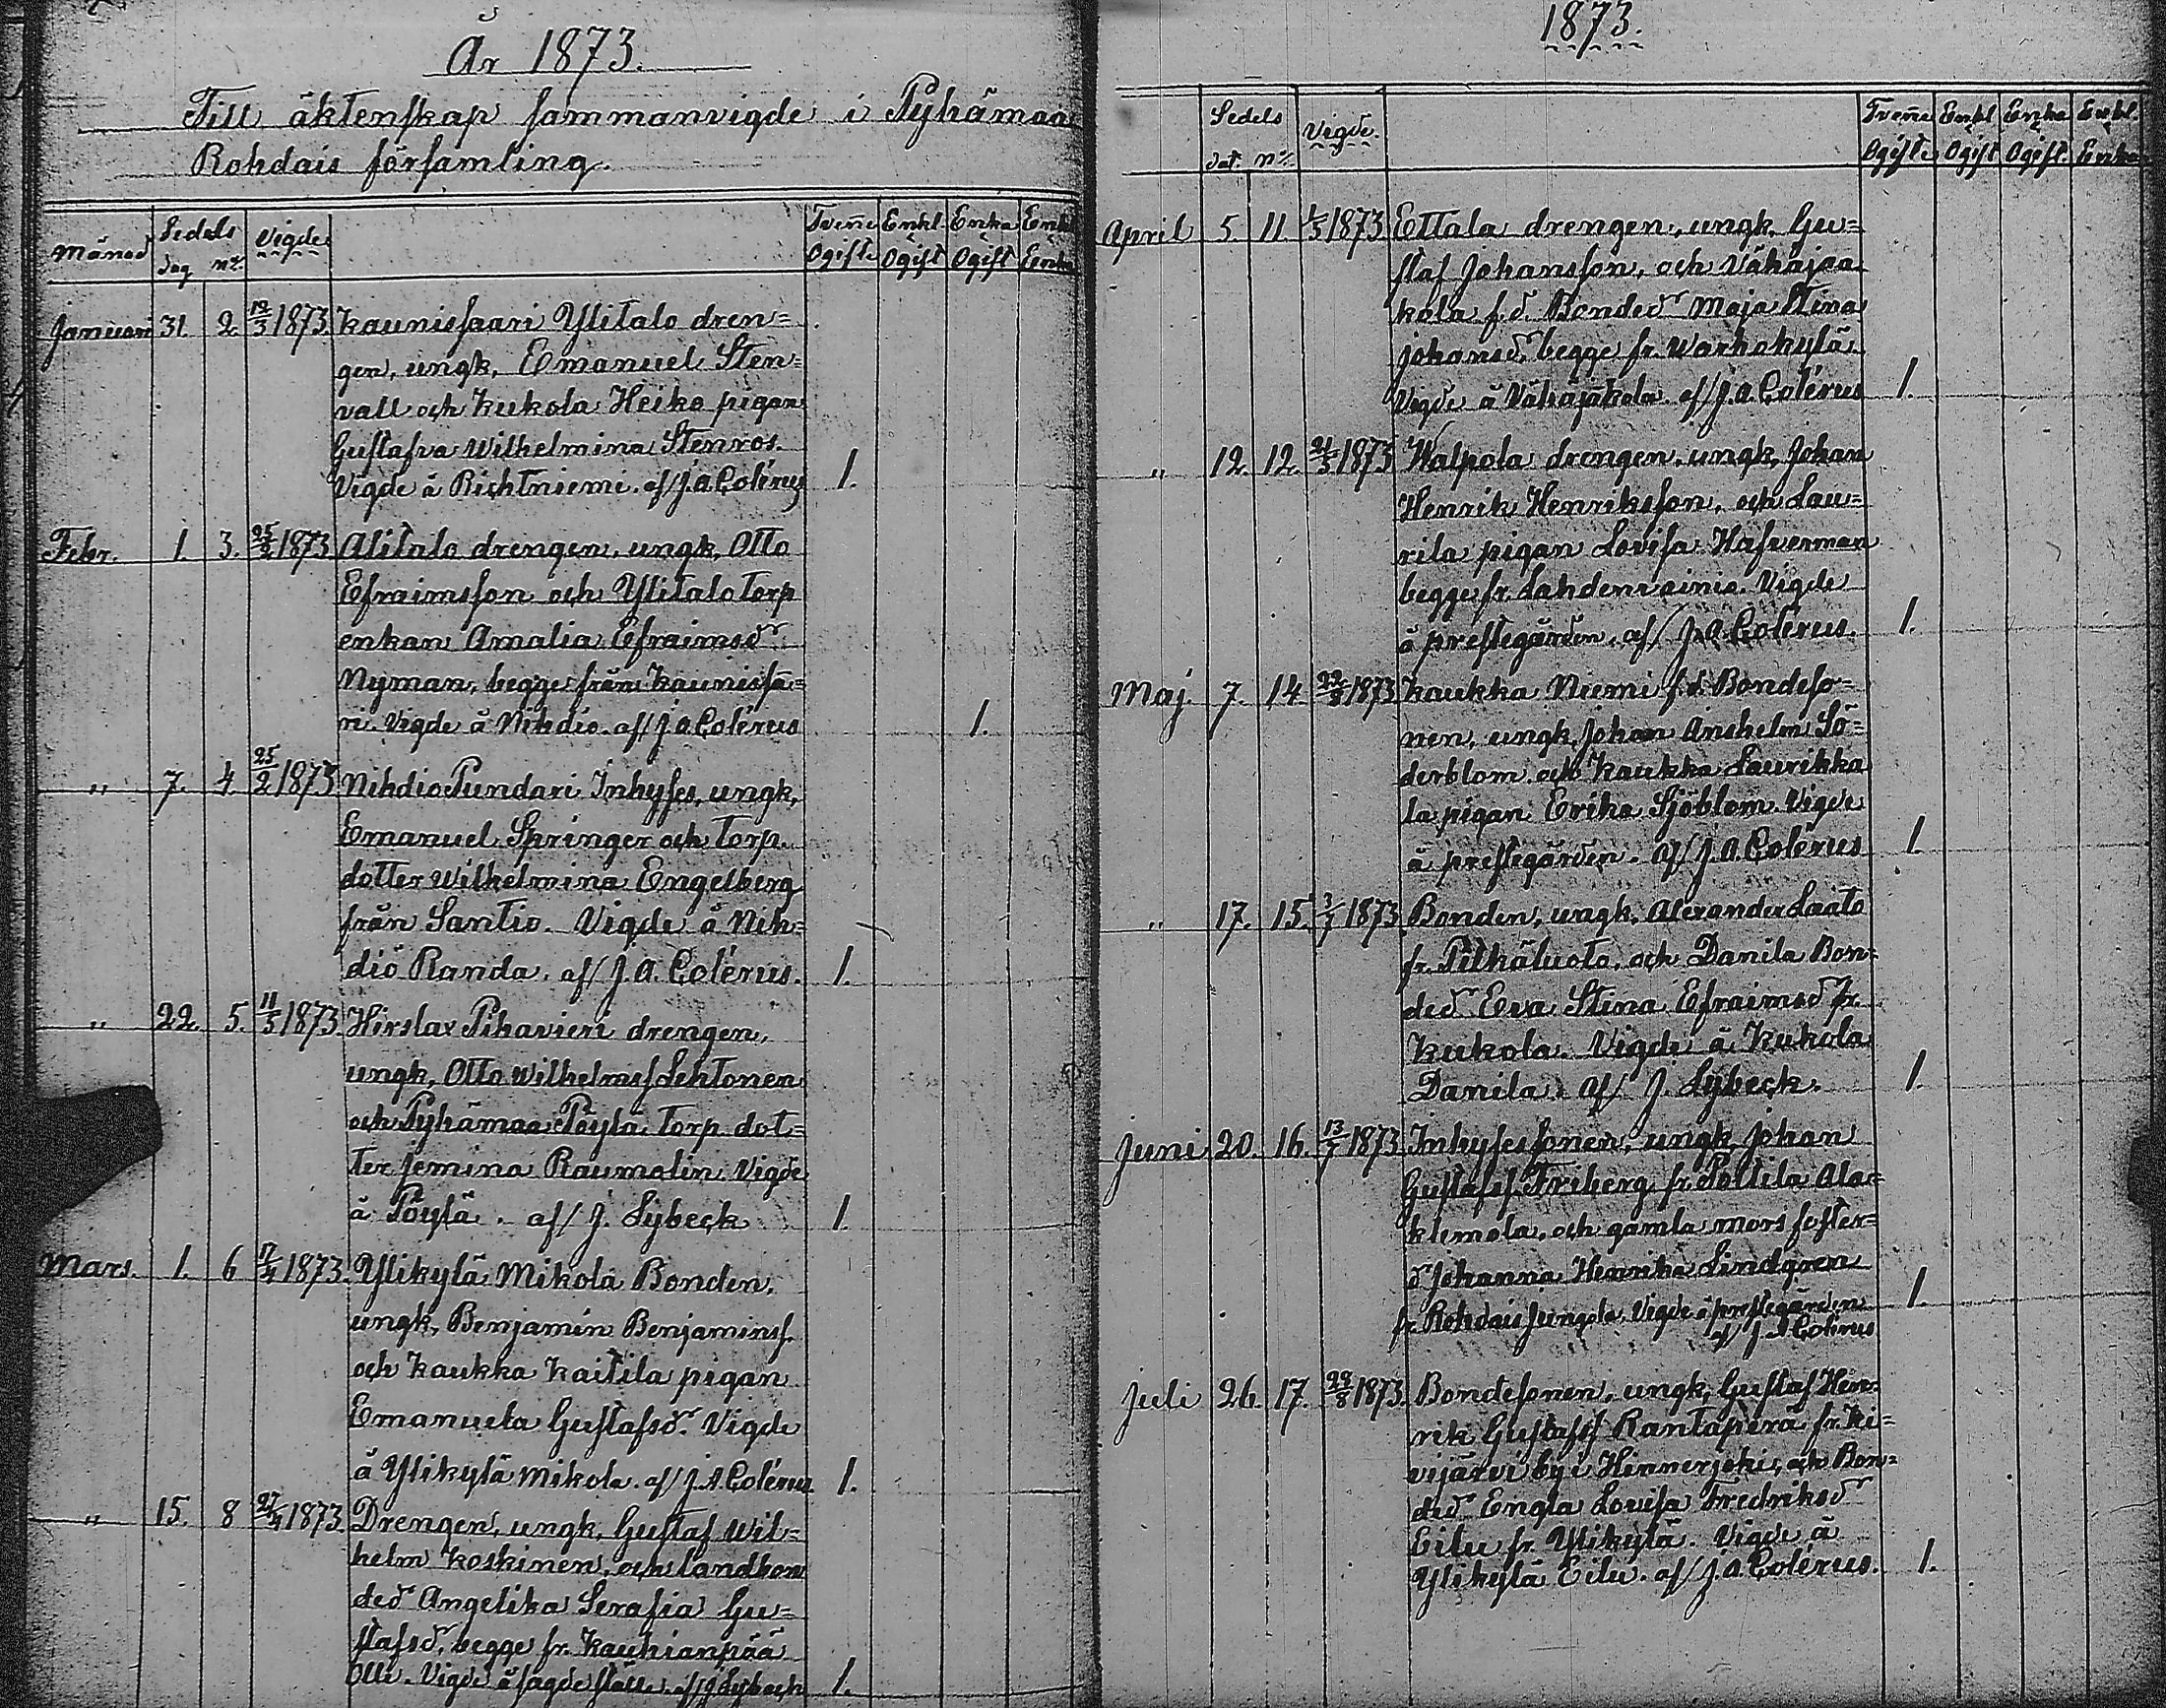 År 1873.
Till äktenskap sammanvigde i Pyhämaa
Rohdais församling.
Månad Sedels dag No. Vigde Tvenne Ogifte Enkl. o Ogift Enka o Ogift Enkl o Enka
Januari 31. 2. 12/3 1873 Kaunissaari Ylitalo dren=
gen, ungk, Emanuel Sten=
vall och Kukola Heiko pigan
Gustafva Wilhelmina Stenros.
Vigde å Richtniemi. af/ J. A. Colérus 1.
Febr. 1. 3. 25/2 1873 Alitalo drengen, ungk, Otto
Efraimsson och Ylitalo torp
enkan Amalia Efraimsdr
Nyman, begge från Kaunissa=
ri. Vigde å Nihdiö. af/ J. A. Colérus 1.
" 7. 4. 25/2 1873 Nihdiö Pundari Inhyses, ungk,
Emanuel Springer och torp.
dotter Wilhelmina Engelberg
från Santio. Vigde å Nih=
diö Randa. af/ J. A. Colérus. 1.
" 22. 5. 11/3 1873. Hirslax Pihavieri drengen,
ungk, Otto Wilhelmss Lehtonen
och Pyhämaa Pöylä torp. dot=
ter Jemina Raumolin. Vigde
å Pöylä. af/ J. Lybeck 1.
Mars. 1. 6 17/4 1873. Ylikylä Mikola Bonden,
ungk, Benjamin Benjamins.
och Kaukka Kaitila pigan
Emanuela Gustafsdr. Vigde
å Ylikylä Mikola. af/ J. A. Colérus. 1.
" 15. 8 27/4 1873. Drengen, ungk, Gustaf Wil=
helm Koskinen, och landbon
dedr Angelika Serafia Gu=
stafsdr, begge fr. Kauhianpää
Olli. Vigde å sagde ställe. af/ J Lybeck 1.
1873.
Sedels dat. No. Vigde. Tvenne Ogifte Enkl o Ogift Enka o Ogift. Enkl. o Enka
April 5. 11. 1/5 1873 Ettala drengen, ungk. Gu=
staf Johansson, och Vähäjaa
kola f.d. Bondedr Maja Stina
Johansdr. begge fr. Warhokylä.
Vigde å Vähäjäkola. af/ J. A. Colérus 1.
" 12. 12. 21/5 1873 Walpola drengen, ungk, Johan
Henrik Henriksson, och Lau=
rila pigan Lovisa Hafverman
begge fr. Lahdenvainio. Vigde
å prestegården. af/ J. A. Colérus. 1.
Maj. 7. 14. 22/8 1873 Kaukka Niemi f.d. Bondeso=
nen, ungk, Johan Anshelm Sö=
derblom. och Kaukka Laurikka
la pigan Erika Sjöblom. Vigde
å prestegården. af/ J. A. Colérus 1.
" 17. 15. 3/7 1873. Bonden, ungk, Alexander Laato
fr. Pitkäluoto, och Danila Bon=
dedr Eva Stina Efraimsdr fr.
Kukola. Vigde å Kukola
Danila. af/ J. Lybeck. 1.
Juni 20. 16. 13/7 1873. Inhysessonen, ungk, Johan
Gustafss. Friberg fr. Polttila Ala=
klemola, och gamla mors foster=
dr Johanna Henrika Lindgren
fr. Rohdais Jungola. Vigde å prestegården
af/ J. A Colérus 1.
Juli 26. 17. 29/8 1873. Bondesonen, ungk, Gustaf Hen=
rik Gustafss Rantaperä fr. Ki=
vijärvi by i Hinnerjoki, och Bon=
dedr Engla Lovisa Fredriksdr
Eilu fr. Ylikylä. Vigde å
Ylikylä Eilu. af/ J. A. Colérus. 1.